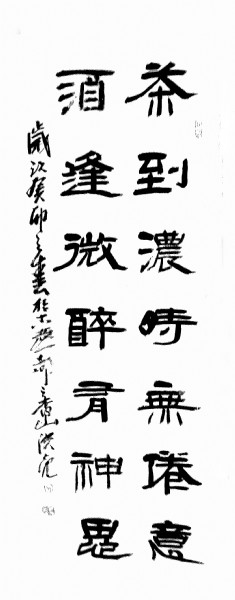 茶到濃時無倦意
須逢微醉有神思
歲次癸卯之春書於